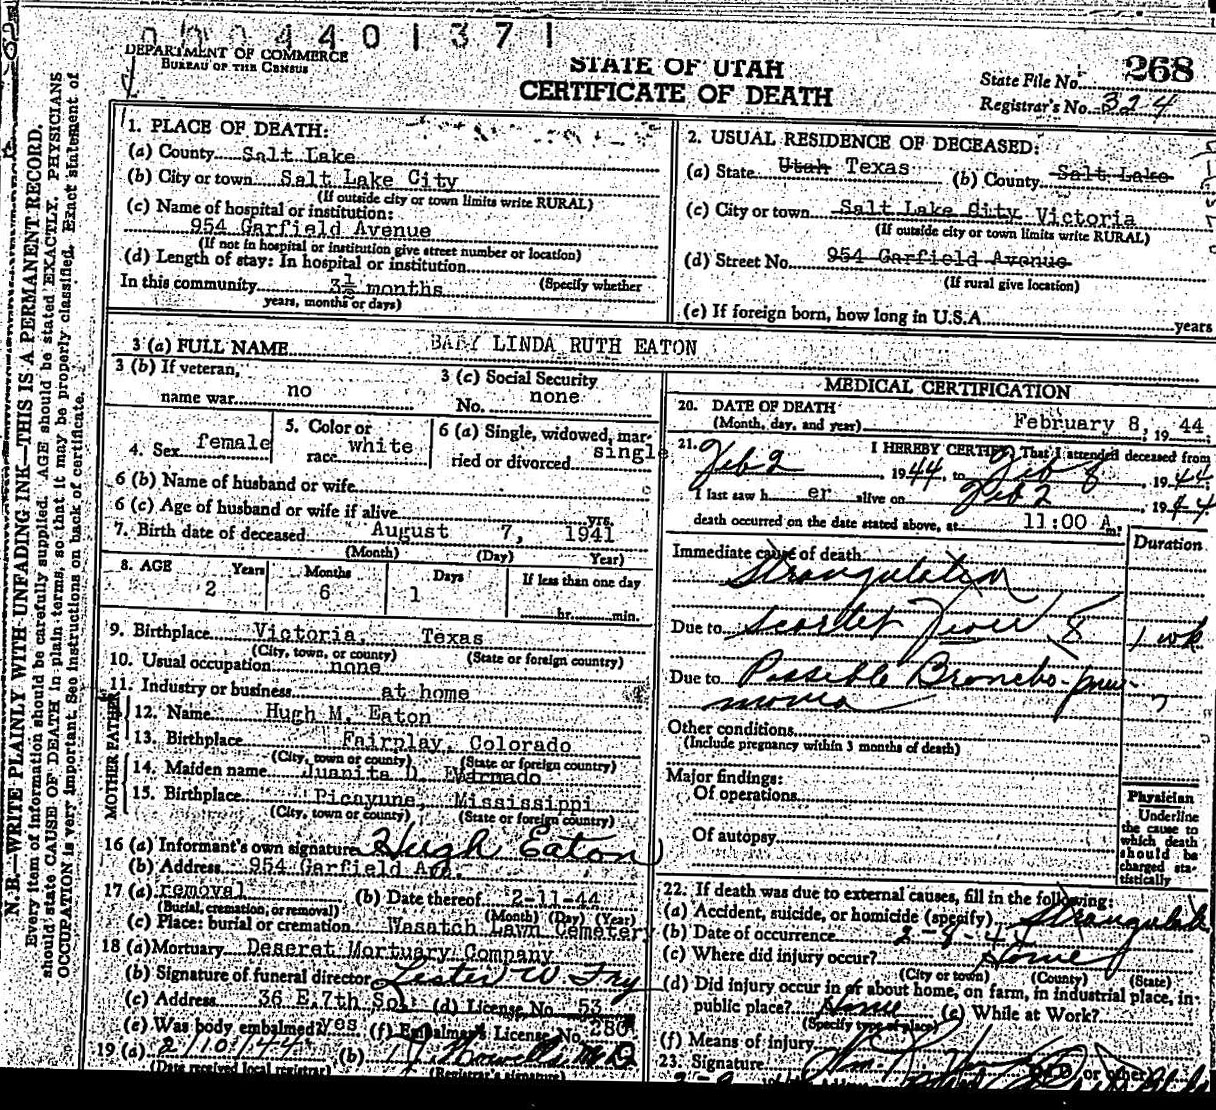 0004401371
DEPARTMENT OF COMMERCE
BUREAU OF THE CENSUS
STATE OF UTAH
CERTIFICATE OF DEATH
State File No. 268
Registrar's No. 324
N. B.—WRITE PLAINLY WITH UNFADING INK—THIS IS A PERMANENT RECORD.
Every item of information should be carefully supplied. AGE should be stated EXACTLY. PHYSICIANS
should state CAUSE OF DEATH in plain terms, so that it may be properly classified. Exact statement of
OCCUPATION is very important. See instructions on back of certificate.
1. PLACE OF DEATH:
(a) County Salt Lake
(b) City or town Salt Lake City
(If outside city or town limits write RURAL)
(c) Name of hospital or institution:
954 Garfield Avenue
(If not in hospital or institution give street number or location)
(d) Length of stay: In hospital or institution
(Specify whether
In this community 3½ months
years, months or days)
2. USUAL RESIDENCE OF DECEASED:
(a) State Utah Texas (b) County Salt Lake
(c) City or town Salt Lake City Victoria
(If outside city or town limits write RURAL)
(d) Street No. 954 Garfield Avenue
(If rural give location)
(e) If foreign born, how long in U.S.A. years
3 (a) FULL NAME BABY LINDA RUTH EATON
3 (b) If veteran,
name war no
3 (c) Social Security
No. none
4. Sex female
5. Color or
race white
6 (a) Single, widowed, mar-
ried or divorced single
6 (b) Name of husband or wife
6 (c) Age of husband or wife if alive yrs.
7. Birth date of deceased August 7, 1941
(Month) (Day) Year)
8. AGE Years Months Days If less than one day
2 6 1
hr. min.
9. Birthplace Victoria, Texas
(City, town, or county) (State or foreign country)
10. Usual occupation none
11. Industry or business at home
FATHER
12. Name Hugh M. Eaton
13. Birthplace Fairplay, Colorado
(City, town or county) (State or foreign country)
MOTHER
14. Maiden name Juanita D. Evarnado
15. Birthplace Picayune, Mississippi
(City, town or county) (State or foreign country)
16 (a) Informant's own signature Hugh Eaton
(b) Address 954 Garfield Ave.
17 (a) removal (b) Date thereof 2-11-44
(Burial, cremation, or removal) (Month) (Day) (Year)
(c) Place: burial or cremation Wasatch Lawn Cemetery
18 (a) Mortuary Deseret Mortuary Company
(b) Signature of funeral director Lester W Fry
(c) Address 36 E. 7th So. (d) License No. 53
(e) Was body embalmed? yes (f) Embalmer's License No. 280
19 (a) 2/10/44 (b)
(Date received local registrar) (Registrar's signature)
MEDICAL CERTIFICATION
20. DATE OF DEATH
(Month, day, and year) February 8, 19 44
21. I HEREBY CERTIFY, That I attended deceased from
Feb 2, 1944, to Feb 8, 1944
I last saw h er alive on Feb 2, 1944
death occurred on the date stated above, at 11:00 A m.
Duration
Immediate cause of death
Strangulation
Due to Scarlet Fever 1 wk
Due to Possible Broncho-pneu-
monia
Other conditions
(Include pregnancy within 3 months of death)
Major findings:
Of operations
Of autopsy
Physician
Underline
the cause to
which death
should be
charged sta-
tistically
22. If death was due to external causes, fill in the following:
(a) Accident, suicide, or homicide (specify)
(b) Date of occurrence 2-8-4
(c) Where did injury occur? Home
(City or town) (County) (State)
(d) Did injury occur in or about home, on farm, in industrial place, in
public place? Home (e) While at Work?
(Specify type of place)
(f) Means of injury
23. Signature